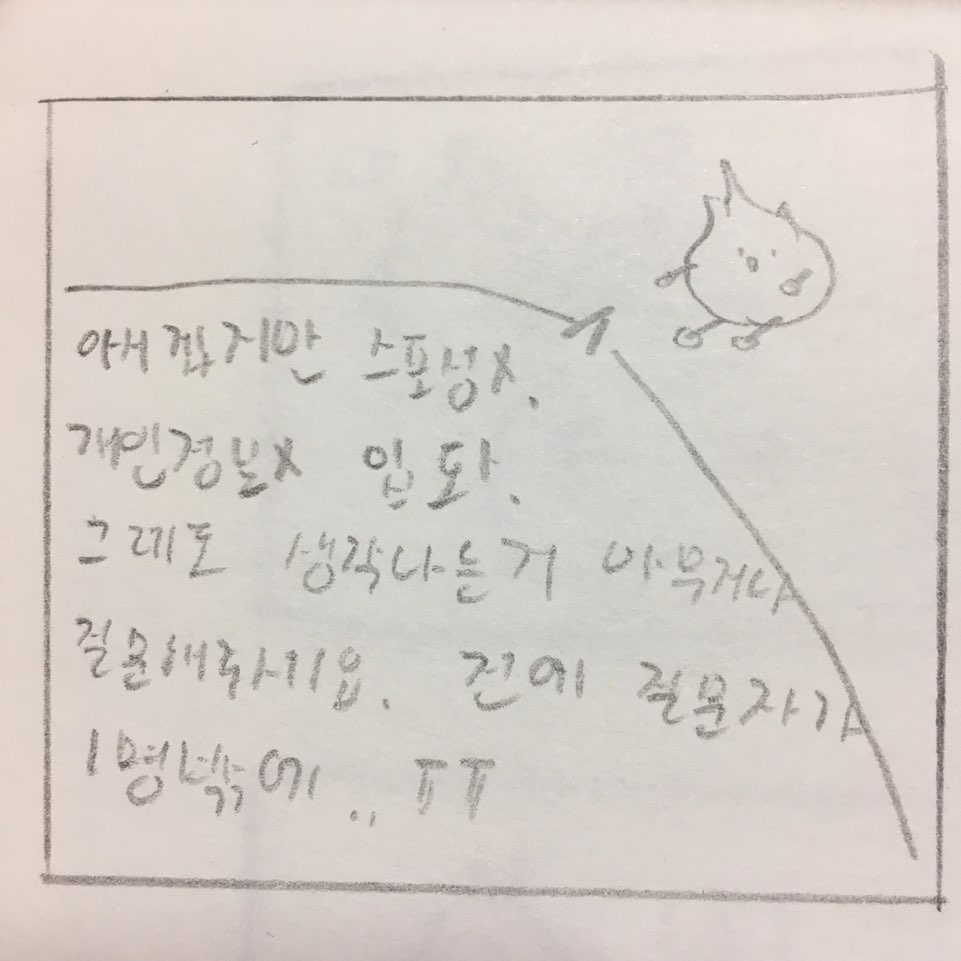 아시겠지만 스포성X,
개인정보X 입돠.
그레도 생각나는거 아무거나
질문해주세요. 전에 질문자가
1명밖에.. ㅠㅠ